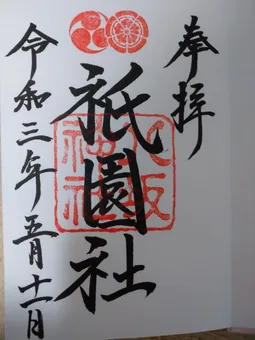 奉拝
祇園社
八坂神社
令和三年五月十一日